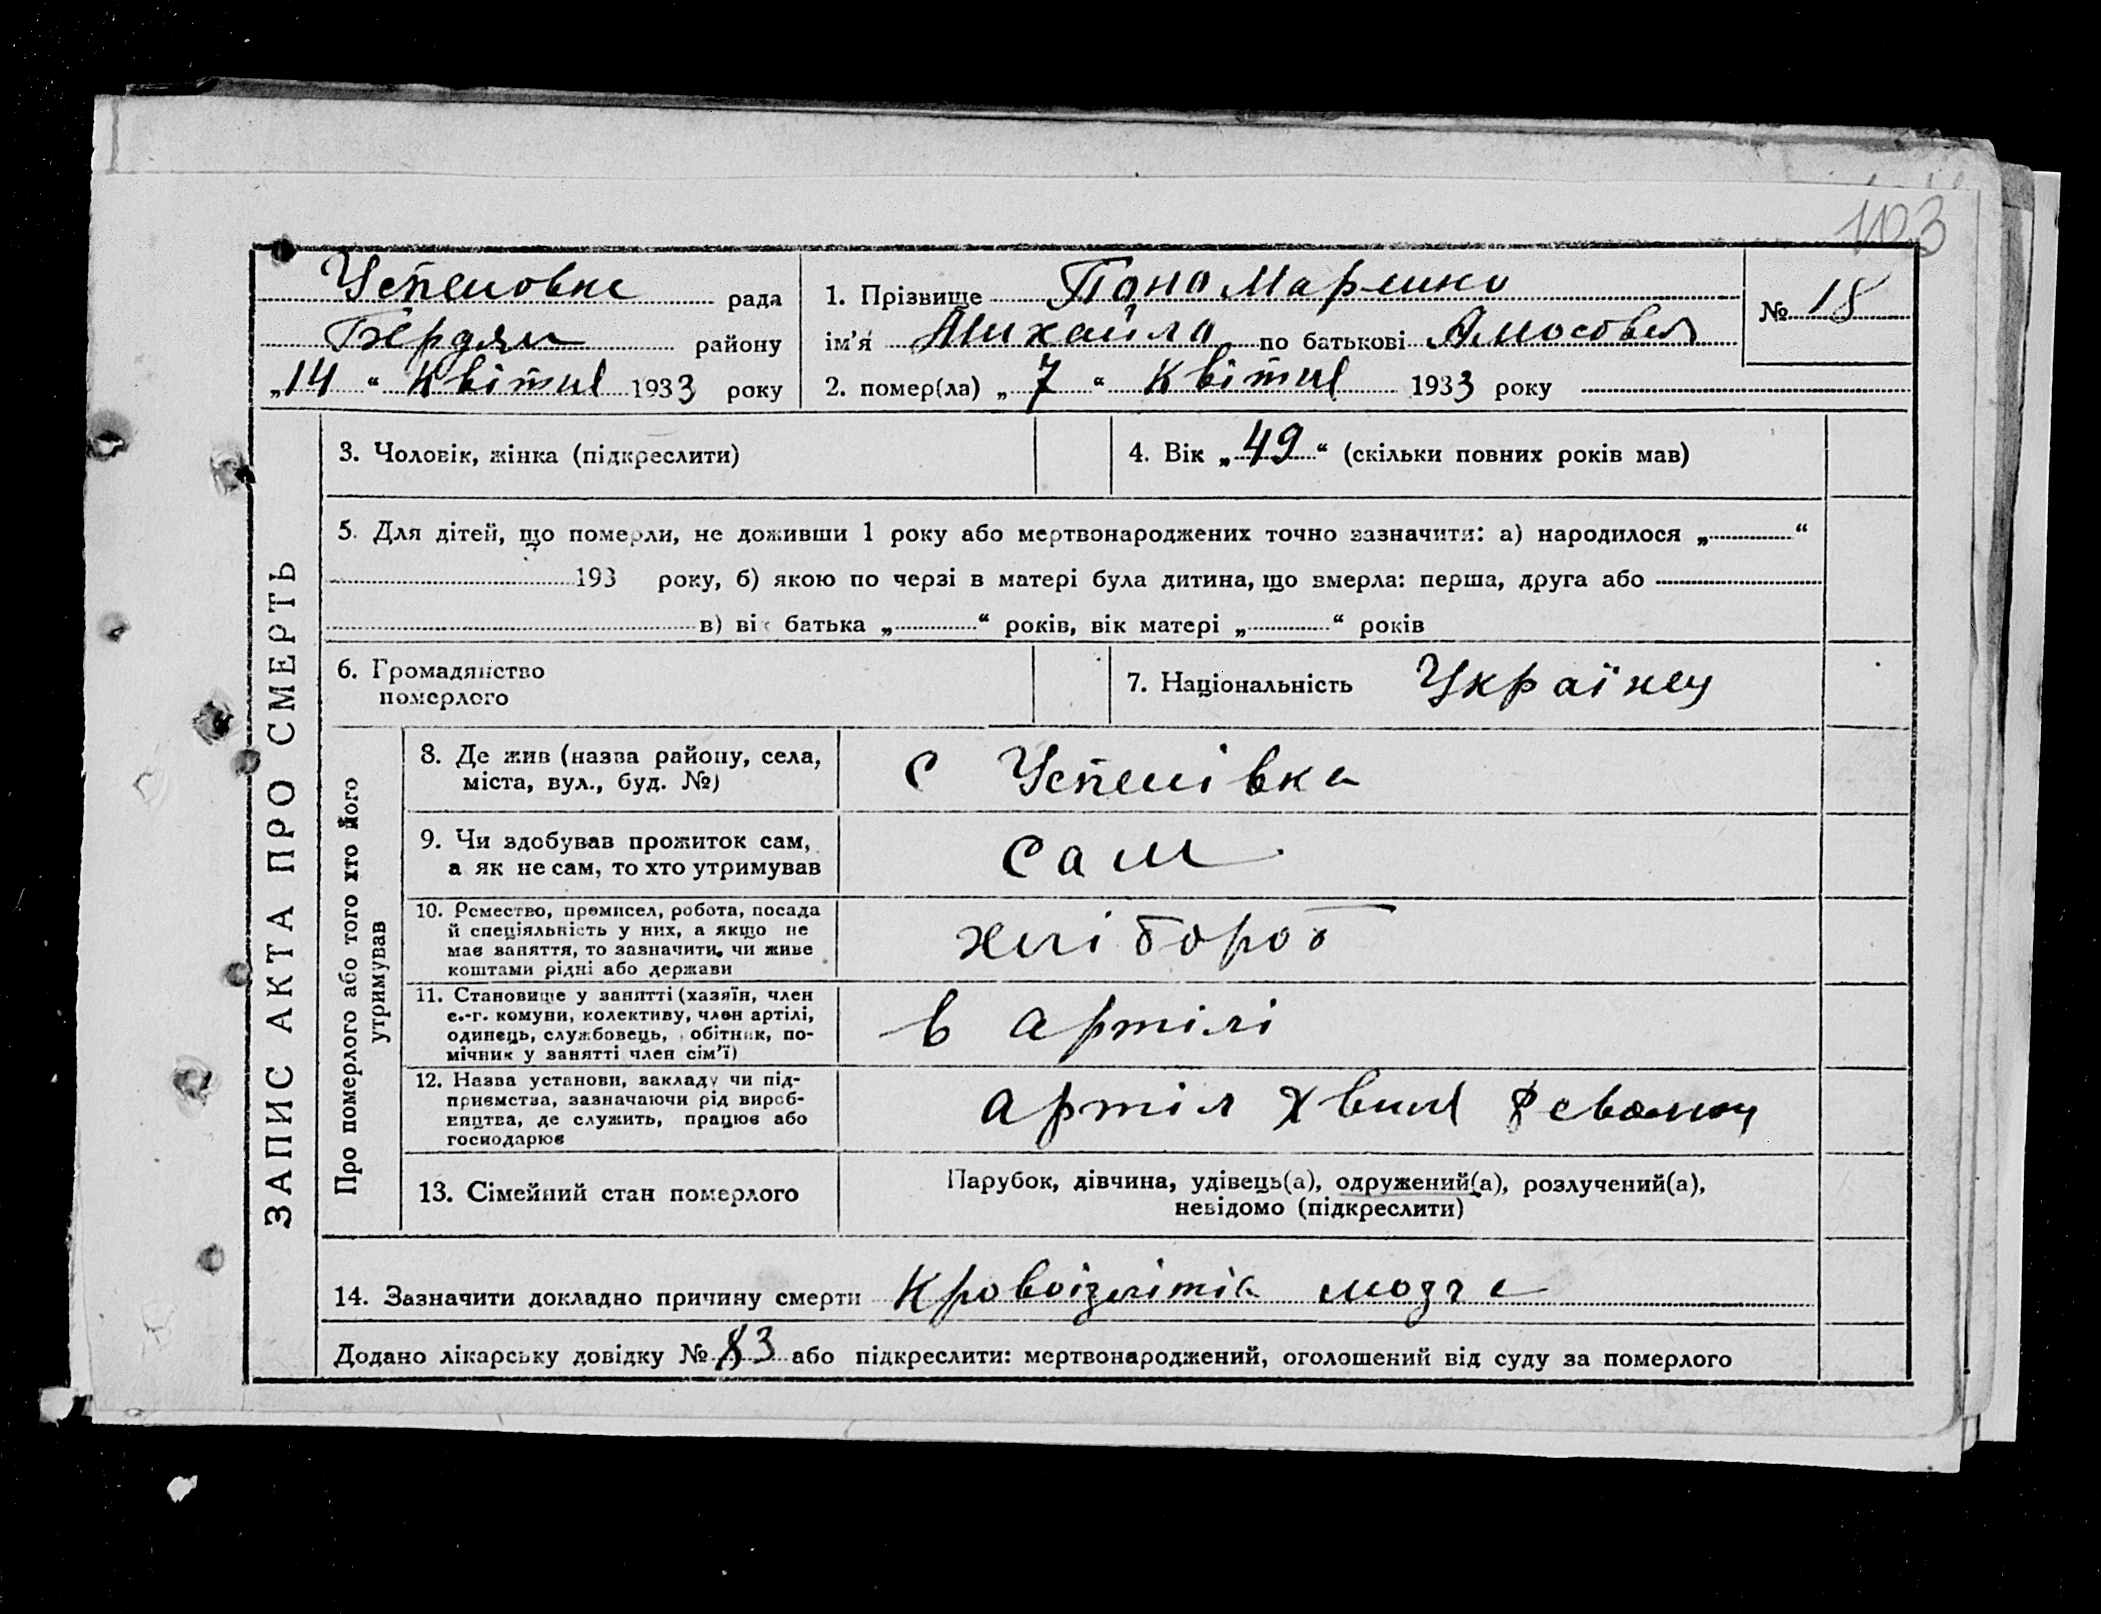 103
Успеновка рада
Бердян району
„14“ Квітня 1933 року
1. Прізвище Пономаренко
ім’я Михайло по батькові Амосович
2. помер(ла) „7“ Квітня 1933 року
№ 18
ЗАПИС АКТА ПРО СМЕРТЬ
3. Чоловік, жінка (підкреслити)
4. Вік „49“ (скільки повних років мав)
5. Для дітей, що померли, не доживши 1 року або мертвонароджених точно зазначити: а) народилося „ “
193 року, б) якою по черзі в матері була дитина, що вмерла: перша, друга або
в) вік батька „ “ років, вік матері „ “ років
6. Громадянство
померлого
7. Національність Українец
Про померлого або того хто його
утримував
8. Де жив (назва району, села,
міста, вул., буд. №)
с Успенівка
9. Чи здобував прожиток сам,
а як не сам, то хто утримував
сам
10. Ремество, промисел, робота, посада
й спеціяльність у них, а якщо не
має заняття, то зазначити, чи живе
коштами рідні або держави
хлібороб
11. Становище у занятті (хазяїн, член
с.-г. комуни, колективу, член артілі,
одинець, службовець, обітник, по-
мічник у занятті член сім’ї)
в артілі
12. Назва установи, закладу чи під-
приємства, зазначаючи рід вироб-
ництва, де служить, працює або
господарює
артіл Хвиля Революц
13. Сімейний стан померлого
Парубок, дівчина, удівець(а), одружений(а), розлучений(а),
невідомо (підкреслити)
14. Зазначити докладно причину смерти Кровоізлітіє мозга
Додано лікарську довідку № 83 або підкреслити: мертвонароджений, оголошений від суду за померлого